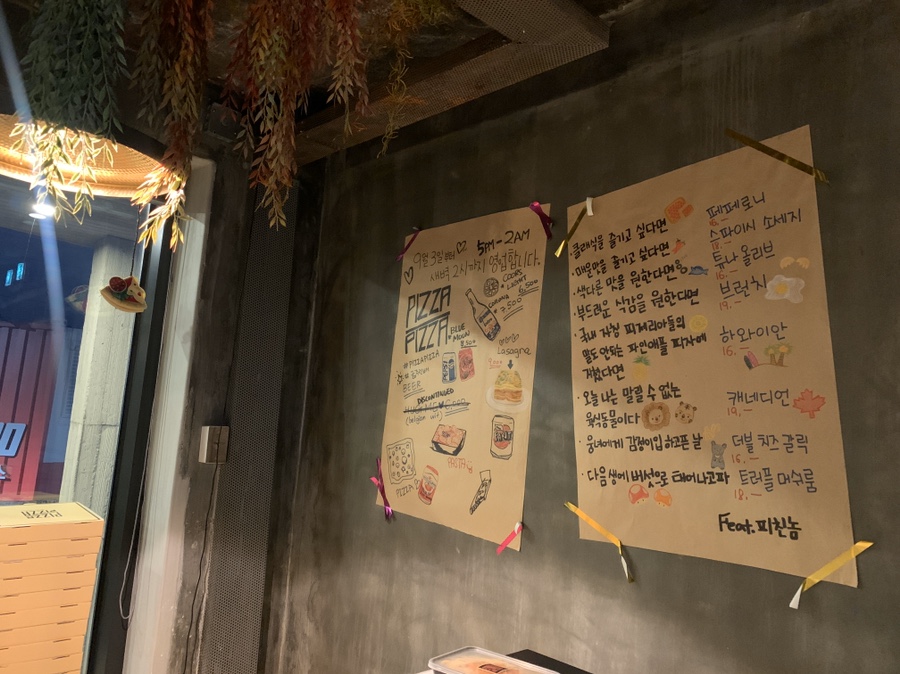 9월 3일부터 5PM-2AM
새벽 2시까지 영업합니다.
PIZZA
PIZZA
COORS
LIGHT
6,500
CORONA
7,500
BLUE
MOON
8,500
Lasagna
#PIZZAPIZZA
BEER
DISCONTINUED
PIZZA
·클래식을 즐기고 싶다면 페페로니
·매운맛을 즐기고 싶다면 스파이시 쏘세지
·색다른 맛을 원한다면 튜나 올리브
16.-
·부드러운 식감을 원한다면 브런치
19.-
·국내 자칭 피제리아들의
말도 안되는 파인애플 피자에 하와이안
16.-
지쳤다면
·오늘 나는 말릴 수 없는 캐네디언
19.-
육식동물이다
·웅녀에게 감정이입 하고픈 날 더블 치즈 갈릭
16.-
·다음 생에 버섯으로 태어나고파 트러플 머쉬룸
18.-
Feat. 피친놈